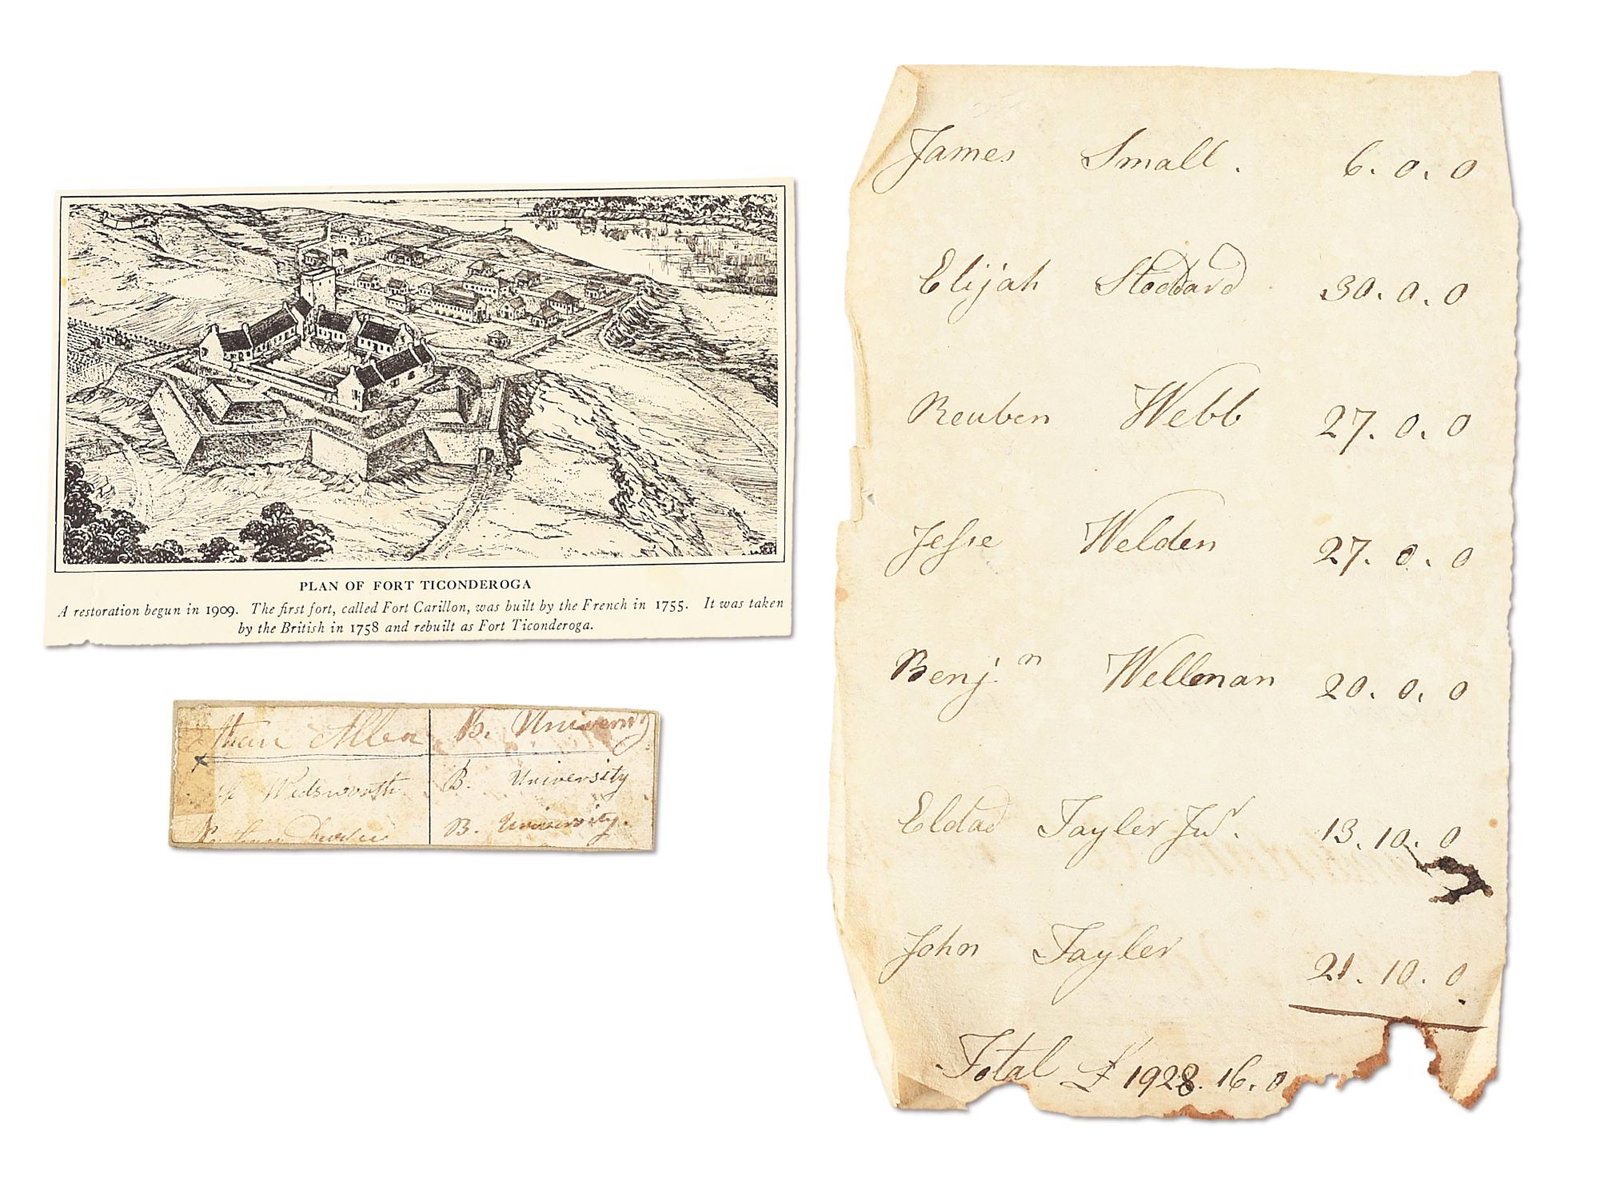 PLAN OF FORT TICONDEROGA
A restoration begun in 1909. The first fort, called Fort Carillon, was built by the French in 1755. It was taken
by the British in 1758 and rebuilt as Fort Ticonderoga.
Allen B. University
Wadsworth B. University
B. University.
James Small. 6. 0. 0
Elijah Stoddard 30. 0. 0
Reuben Webb 27. 0. 0
Jesse Welden 27. 0. 0
Benjn Wellman 20. 0. 0
Eldad Tayler Junr. 13. 10. 0
John Tayler 21. 10. 0
Total £ 1928. 16. 0